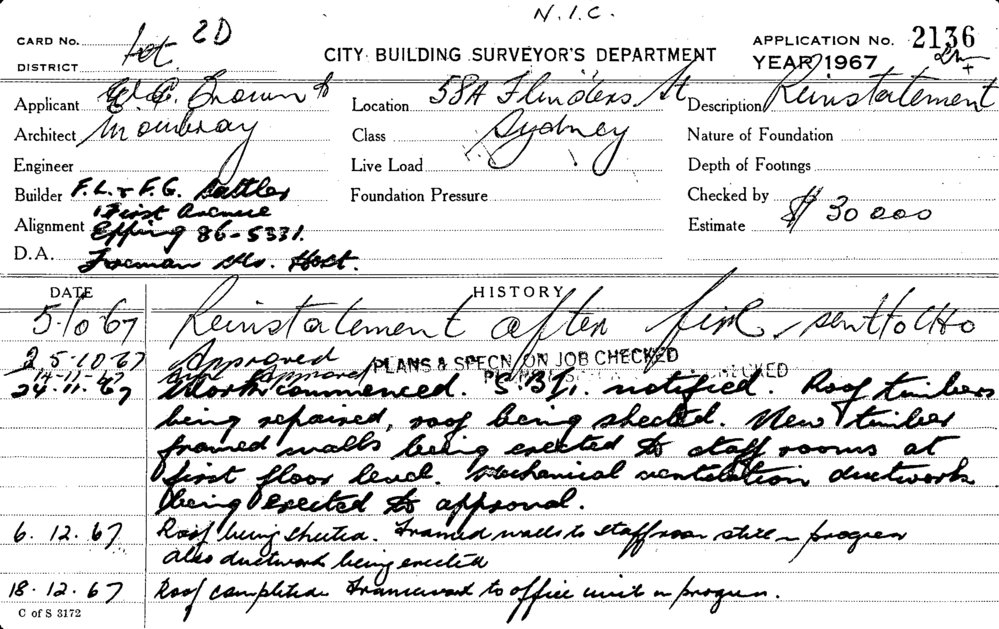 N.I.C.
CARD No. Lot 2D
CITY BUILDING SURVEYOR'S DEPARTMENT
APPLICATION No. 2136
DISTRICT
YEAR 1967
Applicant Brown &
Location 58A Flinders St
Description Reinstatement
Architect Moulray
Class Sydney
Nature of Foundation
Engineer
Live Load
Depth of Footings
Builder F. L. & F. G. Sattler
Foundation Pressure
Checked by
1 First Avenue
Alignment Epping 86-5331.
Estimate $ 30 000
D.A. Foreman Mr. Holt.
DATE HISTORY
5.10.67 Reinstatement after fire sent to CHO
25.10.67 Approved PLANS & SPECN. ON JOB CHECKED
14-11-67 Approved
24.11.67 Work commenced. S.B.I. notified. Roof timbers
being repaired, roof being sheeted. New timber
framed walls being erected to staff rooms at
first floor level. Mechanical ventilation ductworks
being erected to approval.
6.12.67 Roof being sheeted. Framed walls to staff room still in progress
also ductwork being erected
18.12.67 Roof completed. Framework to office unit in progress.
C of S 3172